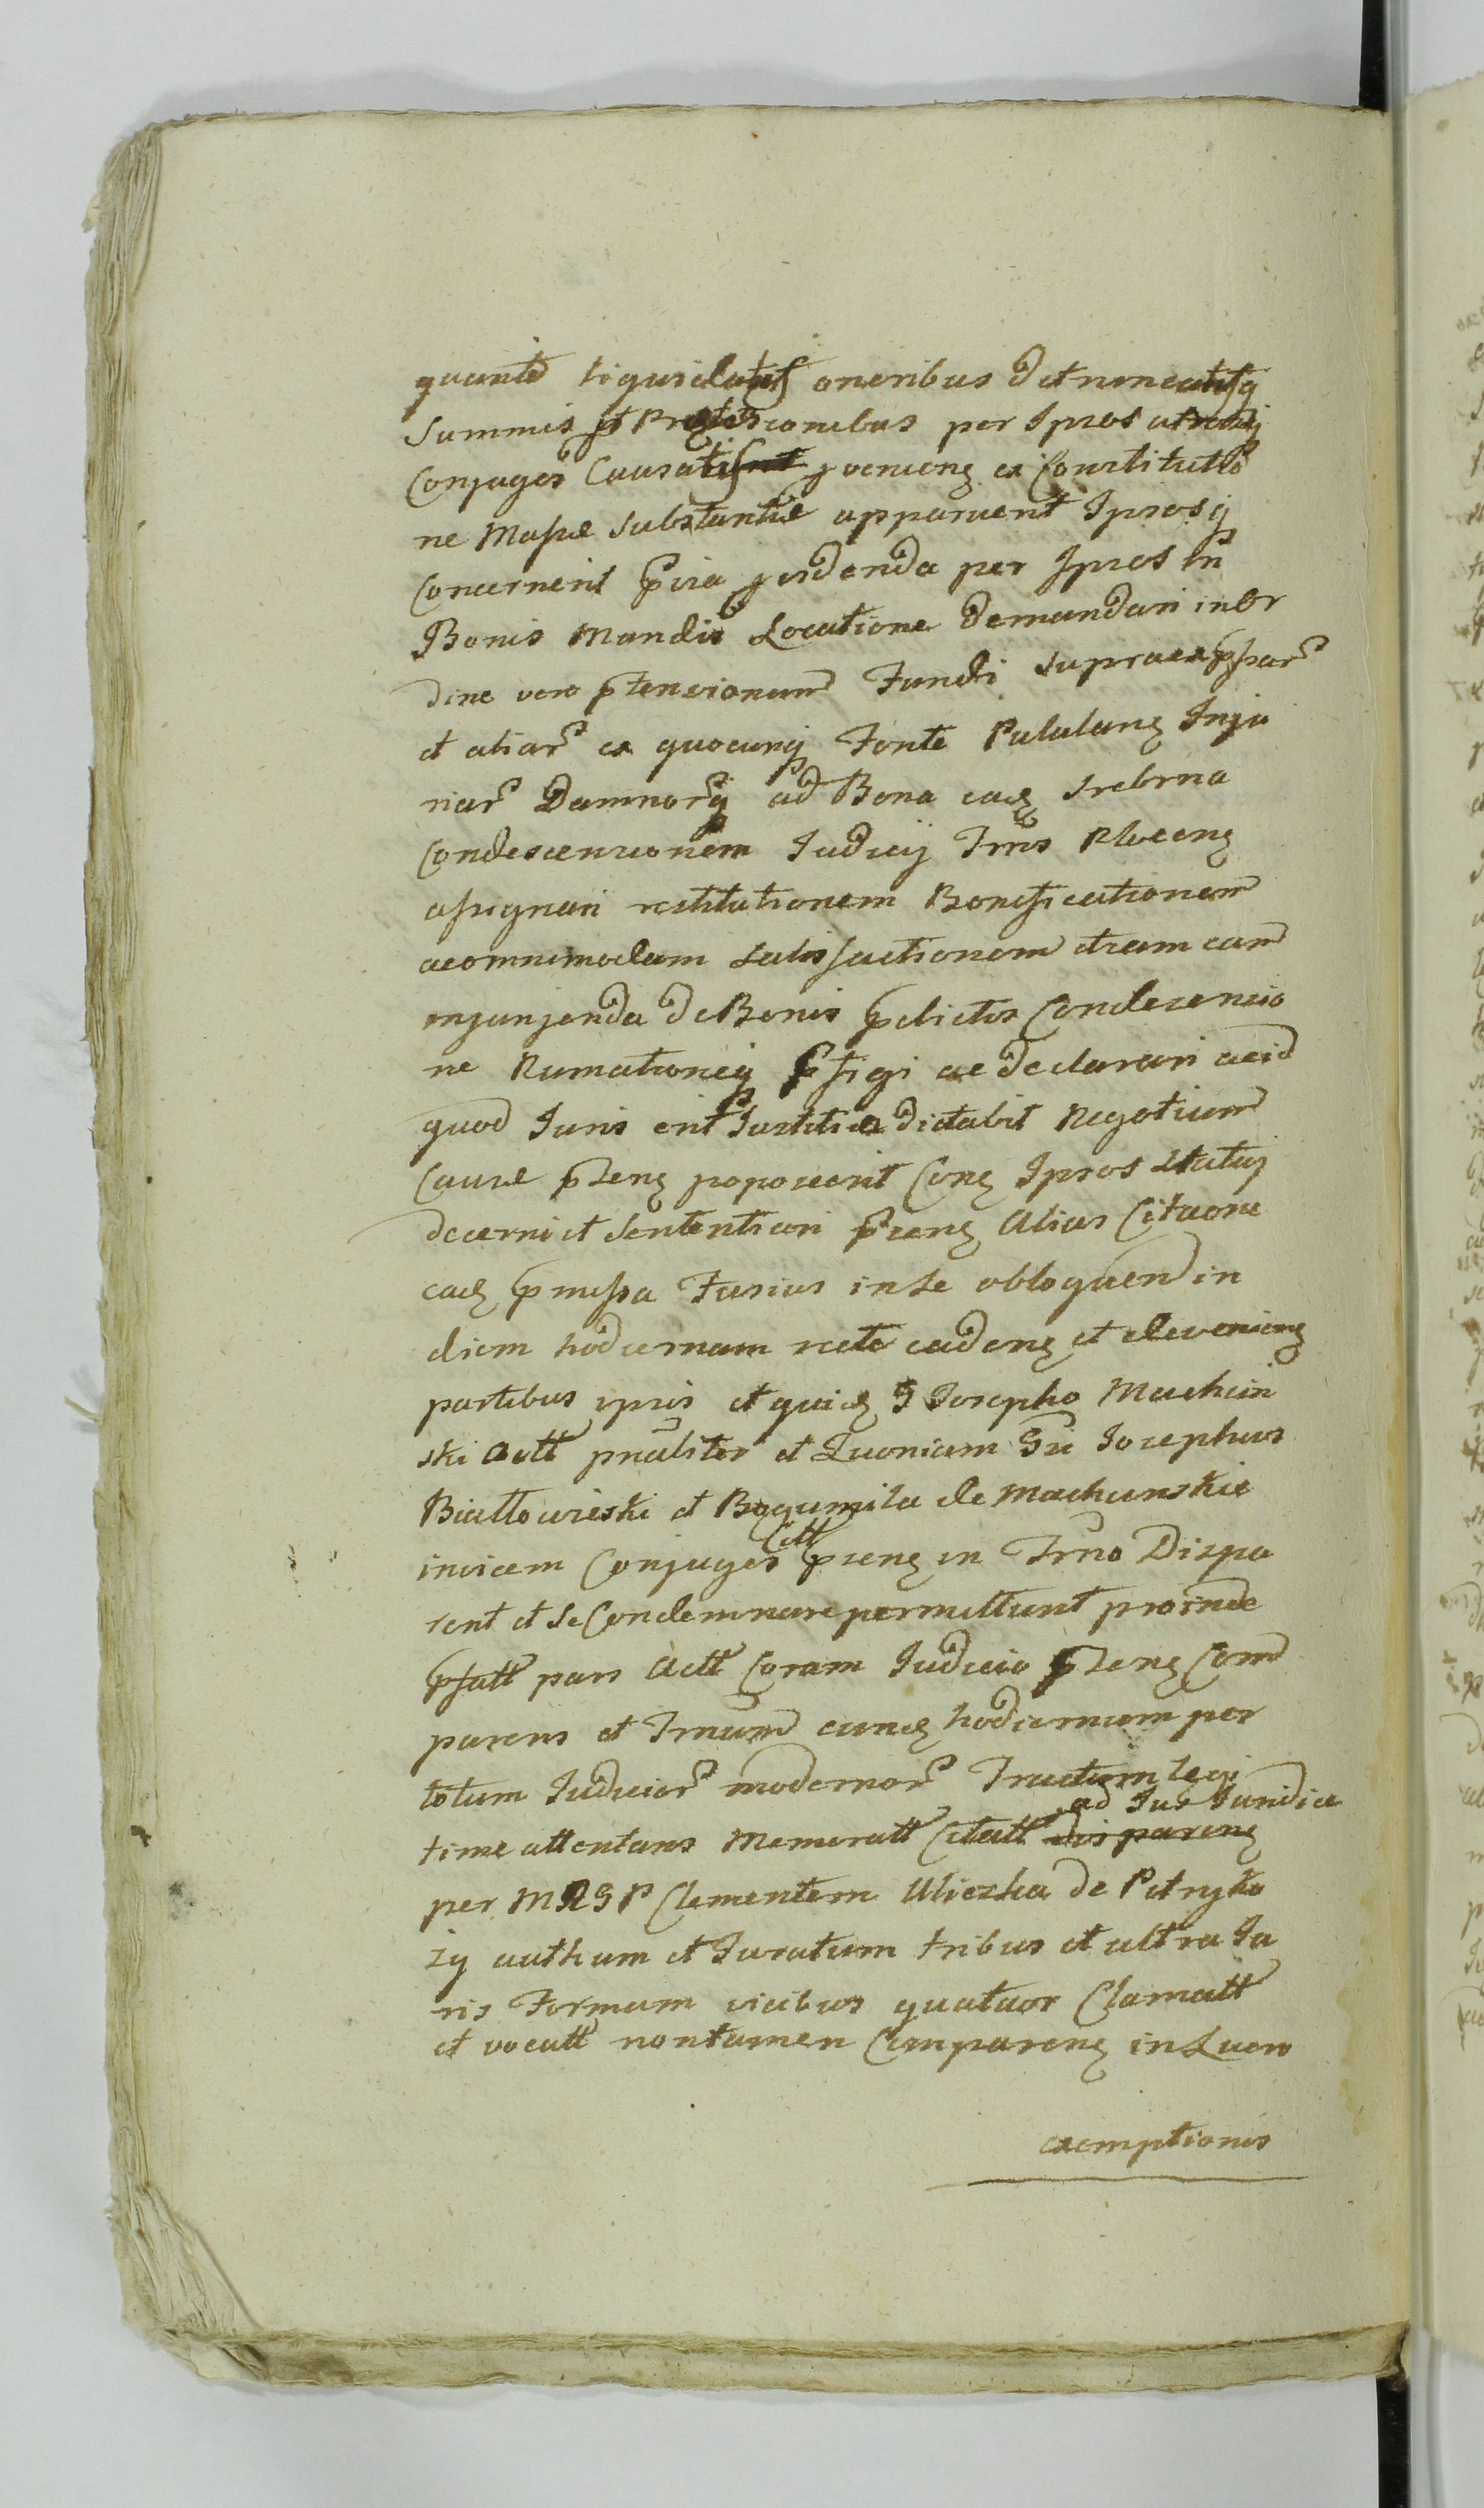 quante liquidatis oneribus detruncatisq
Summis et Pro conibus per Ipsos utrosq
Conjuges Causatis provenieng ex Constitutio
ne Massæ Substantiæ apparuerit Ipsosq
Concernent pria videnda per Ipsos in
Bonis mandis Locatione demandari in or
dine vero ptensionum Fundi supraexpssar
et aliar ex quocunq Fonte Pululang Inju
riar Damnorq ad Bona eadg Srebrna
Condescensionem Judicij Trris Ploceng
assignari restitutionem Bonificationem
acomnimodam satisfactionem etiam eam
injungenda de Bonis pdictis Condescensio
ne Rumationeq pfigi ac declarari acid
quod Juris erit Justitia dictabit Negotium
Causæ pseng poposcerit Cong Ipsos Statuj
decerni et Sententiari pseng Alias Citaone
eadg pmissa Fusius in se obloquen in
diem hodiernam recte cadeng et devenieng
partibus ipsis et quidg G Josepho Machcin
ski Actt pnaliter et Quoniam Gsi Josephus
Białłowieski et Bogumila de Machunskie
invicem Conjuges Citt pseng in Trno Dispa
rent et se Condemnare permittunt proinde
pfatt pars Actt Coram Judicio pseng Com
parens et Trnum eundg hodiernum per
totum Judicior modernor Tractum legi
time attentans Memoratt Citatt dispareng ad Jus Juridice
per MRGP Clementem Uliczka de Petryko
zy authum et Juratum tribus et ultra Ju
ris Formam vicibus quatuor Clamatt
et vocatt non tamen Compareng in Lucro
exemptionis